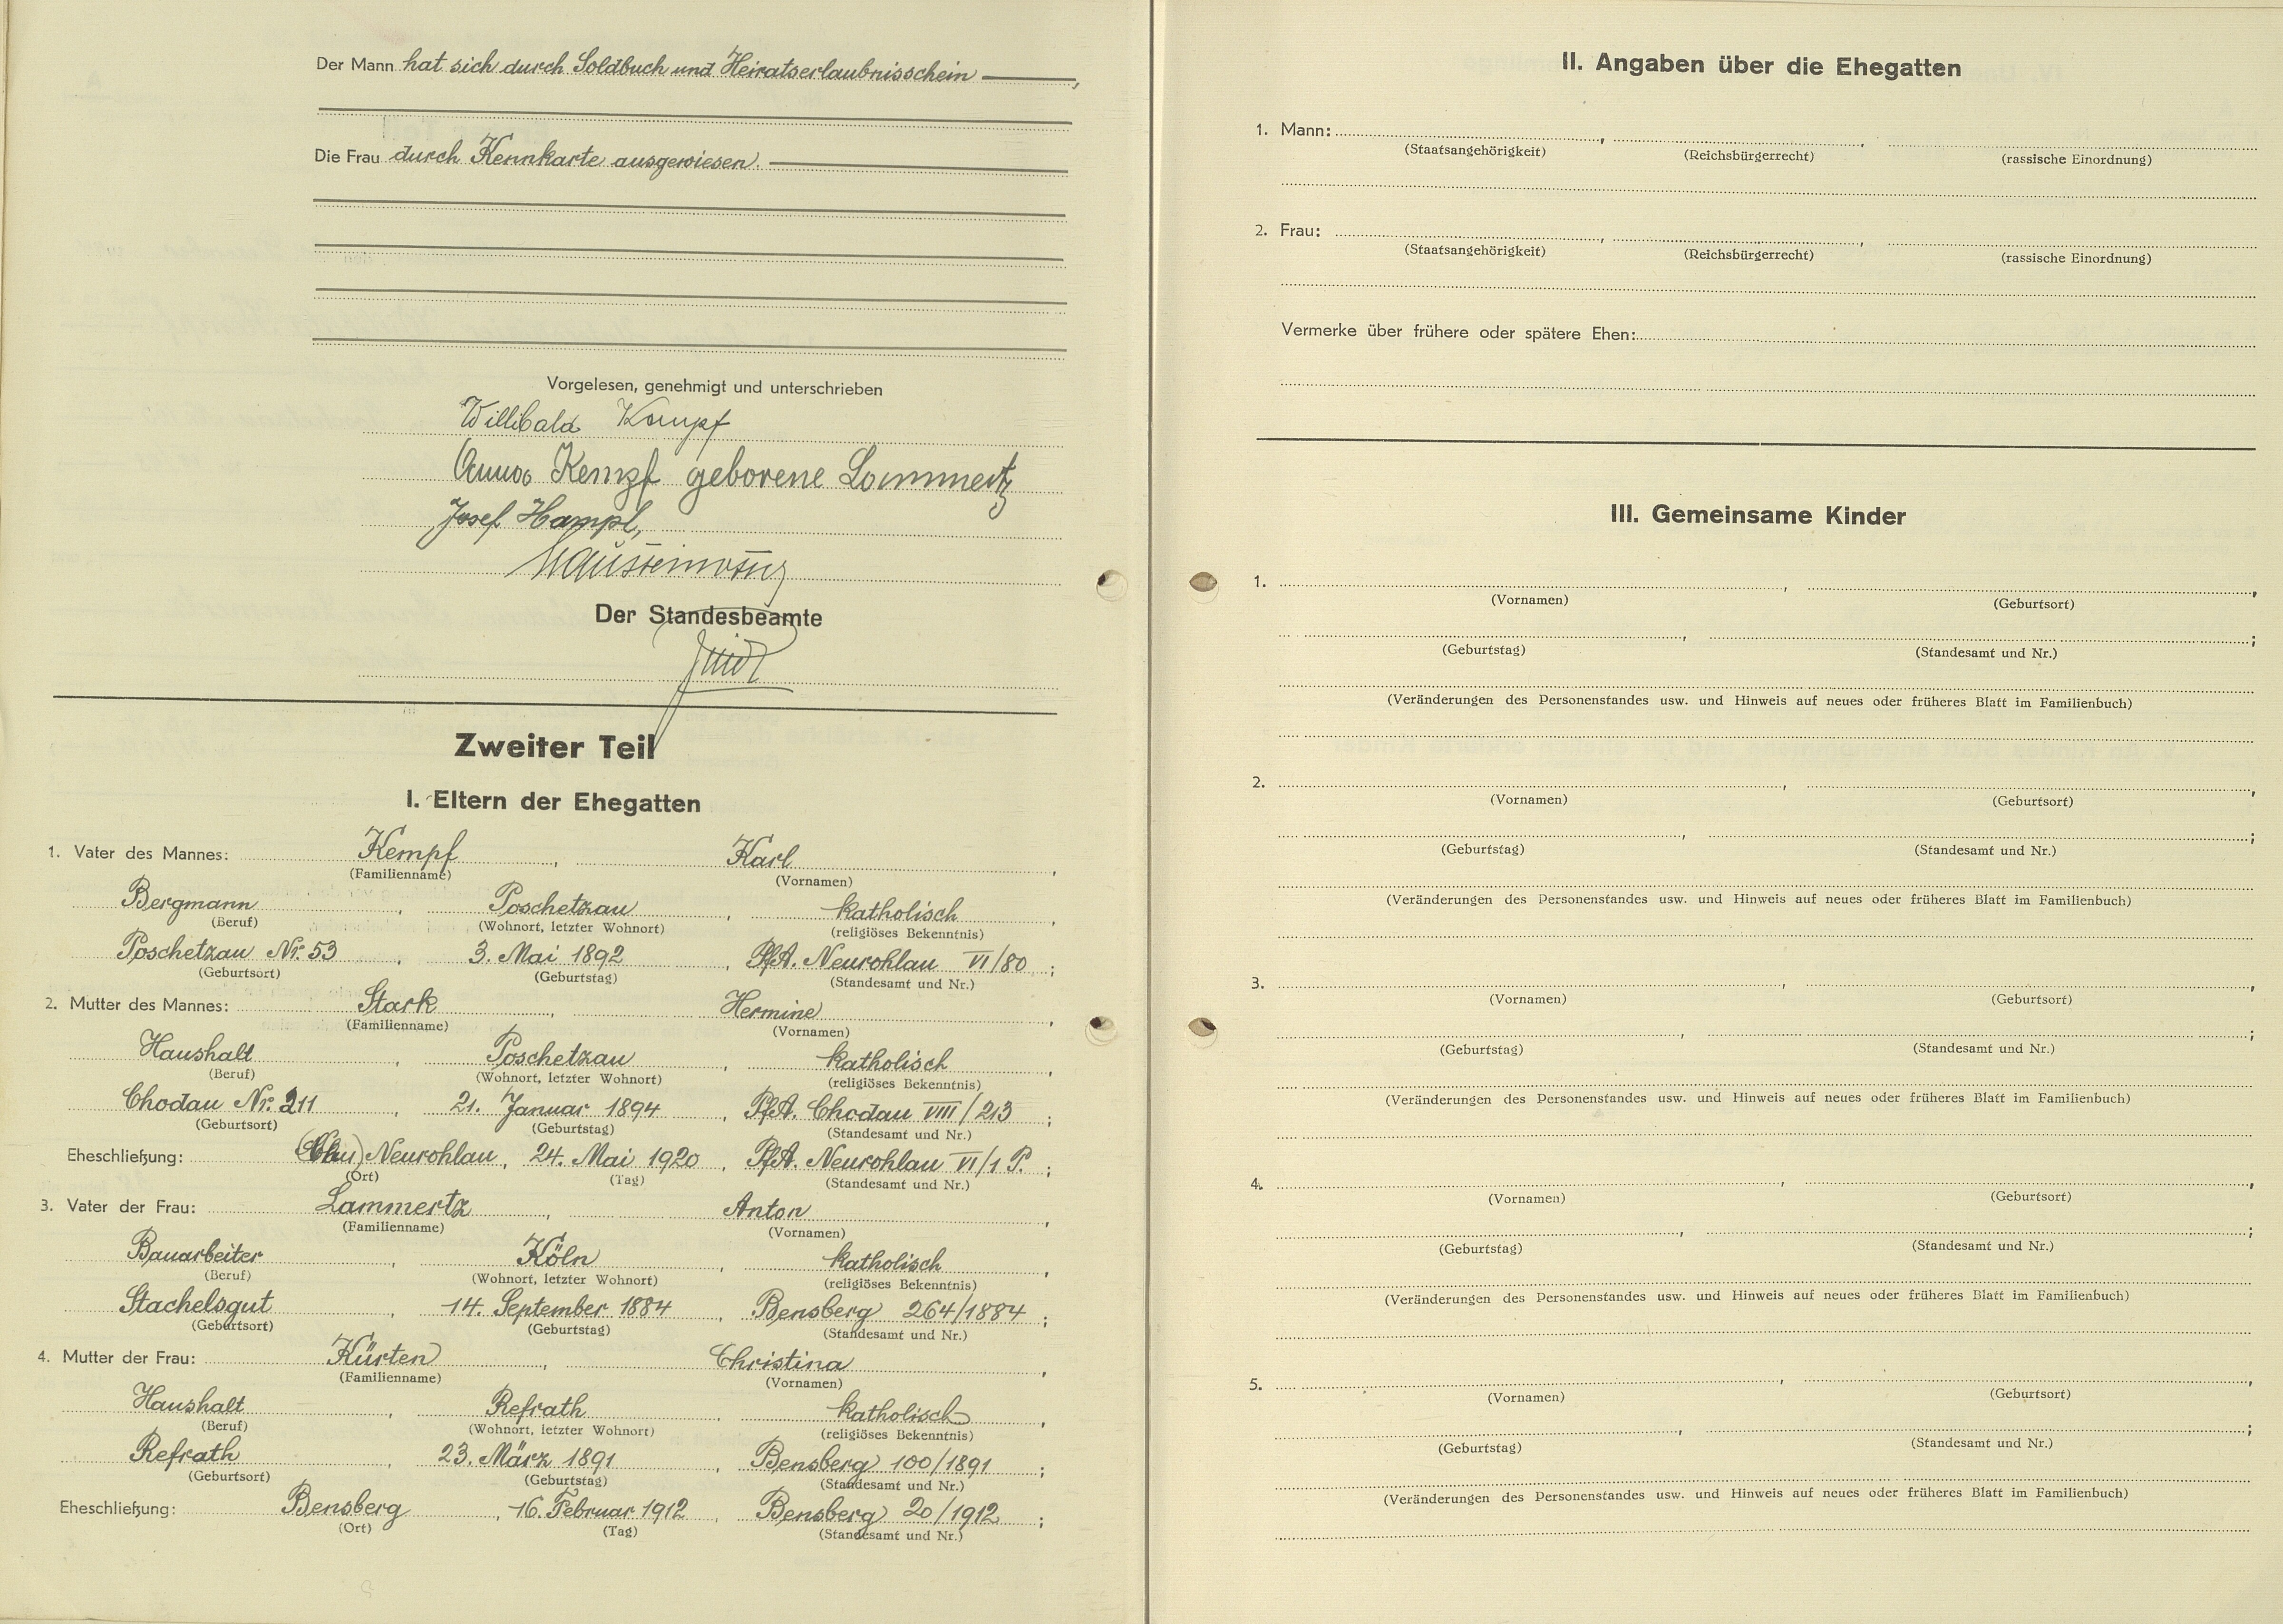 Der Mann hat sich durch Soldbuch und Heiratserlaubnisschein ,
Die Frau durch Kennkarte ausgewiesen.
Vorgelesen, genehmigt und unterschrieben
Willibald Kempf
Anna Kempf geborene Lommertz
Josef Hampl,
Der Standesbeamte
Zweiter Teil
I. Eltern der Ehegatten
1. Vater des Mannes: Kempf , Karl ,
(Familienname) (Vornamen)
Bergmann , Poschetzau , katholisch ,
(Beruf) (Wohnort, letzter Wohnort) (religiöses Bekenntnis)
Poschetzau Nr. 53 , 3. Mai 1892 , PfA. Neurohlau VI/80 ;
(Geburtsort) (Geburtstag) (Standesamt und Nr.)
2. Mutter des Mannes: Stark , Hermine ,
(Familienname) (Vornamen)
Haushalt , Poschetzau , katholisch ,
(Beruf) (Wohnort, letzter Wohnort) (religiöses Bekenntnis)
Chodau Nr. 211 , 21. Januar 1894 , PfA. Chodau VIII/213 ;
(Geburtsort) (Geburtstag) (Standesamt und Nr.)
Eheschließung: Neurohlau , 24. Mai 1920 , PfA. Neurohlau VI/1 P. ;
(Ort) (Tag) (Standesamt und Nr.)
3. Vater der Frau: Lammertz , Anton ,
(Familienname) (Vornamen)
Bauarbeiter , Köln , katholisch ,
(Beruf) (Wohnort, letzter Wohnort) (religiöses Bekenntnis)
Stachelsgut , 14. September 1884 , Bensberg 264/1884 ;
(Geburtsort) (Geburtstag) (Standesamt und Nr.)
4. Mutter der Frau: Kürten , Christina ,
(Familienname) (Vornamen)
Haushalt , Refrath , katholisch ,
(Beruf) (Wohnort, letzter Wohnort) (religiöses Bekenntnis)
Refrath , 23. März 1891 , Bensberg 100/1891 ;
(Geburtsort) (Geburtstag) (Standesamt und Nr.)
Eheschließung: Bensberg , 16. Februar 1912 , Bensberg 20/1912 ;
(Ort) (Tag) (Standesamt und Nr.)
II. Angaben über die Ehegatten
1. Mann: , ,
(Staatsangehörigkeit) (Reichsbürgerrecht) (rassische Einordnung)
2. Frau: , ,
(Staatsangehörigkeit) (Reichsbürgerrecht) (rassische Einordnung)
Vermerke über frühere oder spätere Ehen:
III. Gemeinsame Kinder
1. , ,
(Vornamen) (Geburtsort)
, ;
(Geburtstag) (Standesamt und Nr.)
(Veränderungen des Personenstandes usw. und Hinweis auf neues oder früheres Blatt im Familienbuch)
2. , ,
(Vornamen) (Geburtsort)
, ;
(Geburtstag) (Standesamt und Nr.)
(Veränderungen des Personenstandes usw. und Hinweis auf neues oder früheres Blatt im Familienbuch)
3. , ,
(Vornamen) (Geburtsort)
, ;
(Geburtstag) (Standesamt und Nr.)
(Veränderungen des Personenstandes usw. und Hinweis auf neues oder früheres Blatt im Familienbuch)
4. , ,
(Vornamen) (Geburtsort)
, ;
(Geburtstag) (Standesamt und Nr.)
(Veränderungen des Personenstandes usw. und Hinweis auf neues oder früheres Blatt im Familienbuch)
5. , ,
(Vornamen) (Geburtsort)
, ;
(Geburtstag) (Standesamt und Nr.)
(Veränderungen des Personenstandes usw. und Hinweis auf neues oder früheres Blatt im Familienbuch)